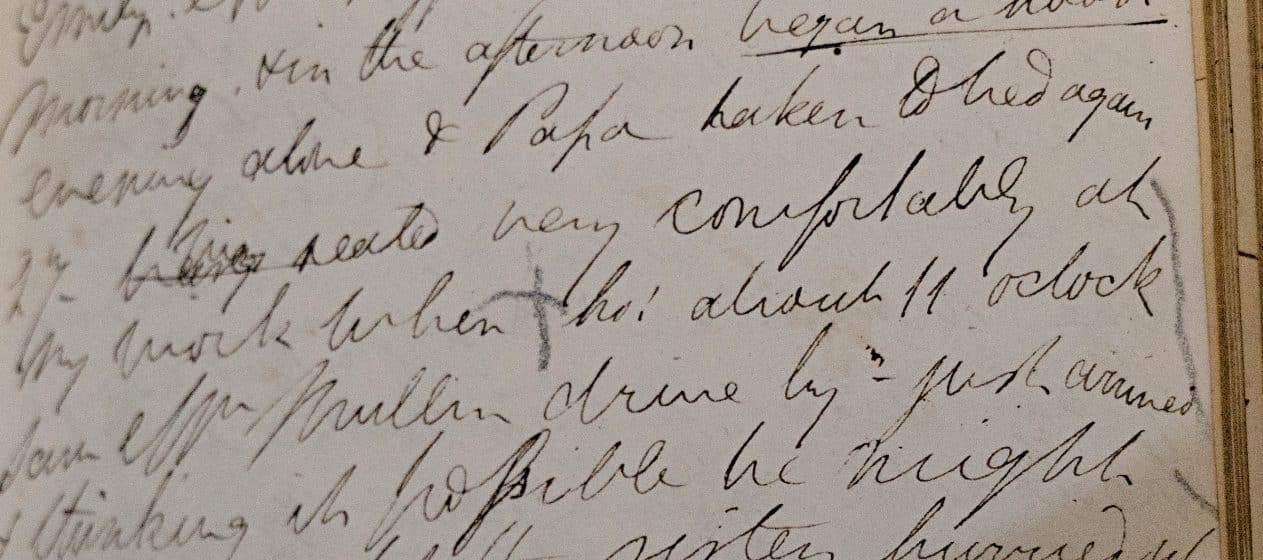 Emily.
morning. & in the afternoon began a
evening alone & Papa taken to bed again
27 being seated very comfortably at
my work when + ho! about 11 oclock
saw Mullin drive by - just arrived
& thinking it possible he might
sister hurried